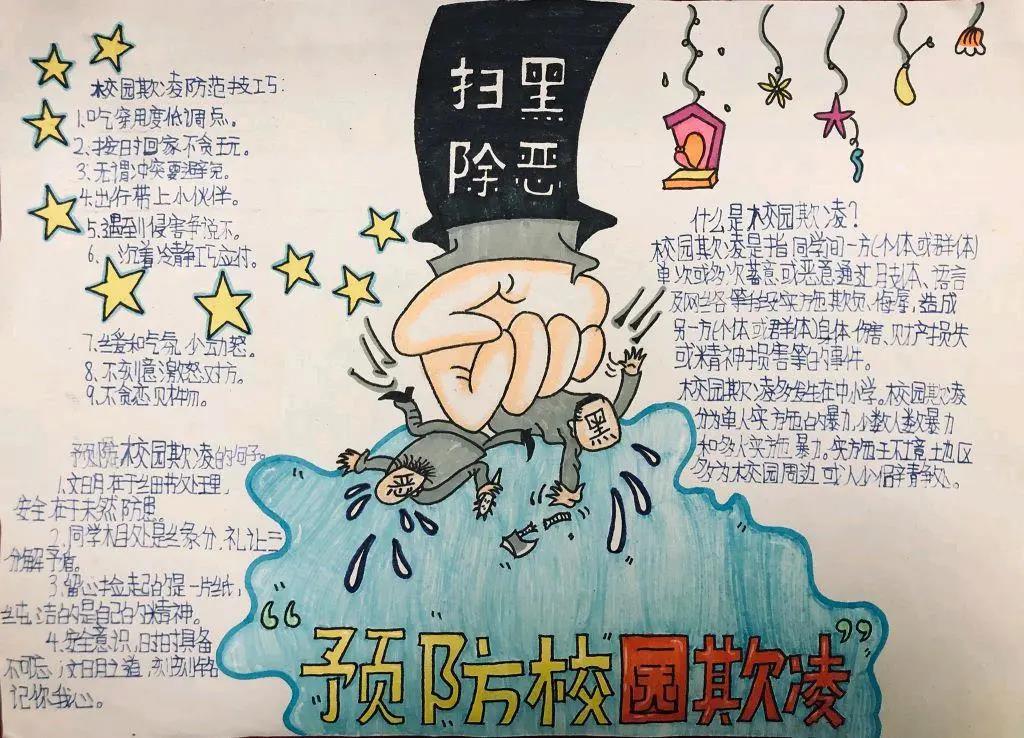 扫黑
除恶
校园欺凌防范技巧：
1.吃穿用度低调点。
2.按时回家不贪玩。
3.无谓冲突要避免。
4.出行带上小伙伴。
5.遇到侵害争说不。
6.沉着冷静巧应付。
7.丝爱和气氛少动怒。
8.不刻意激怒对方。
9.不贪恋财物。
预防校园欺凌的句子
1.文明在于细节处理，
安全在于未然防患。
2.同学相处是缘分，礼让三
分解矛盾。
3.留心捡起的是一片纸，
纯洁的是自己的精神。
4.安全意识，时时具备
不可忘，文明之道，刻刻铭
记你我心。
什么是校园欺凌？
校园欺凌是指同学间一方（个体或群体）
单次或多次蓄意或恶意通过肢体、语言
及网络等手段实施欺负、侮辱，造成
另一方（个体或群体）身体伤害、财产损失
或精神损害等的事件。
校园欺凌多发生在中小学。校园欺凌
分为单人实施的暴力，少数人数暴力
和多人实施暴力。实施环境地区
多为校园周边或人少僻静处。
恶
黑
“预防校园欺凌”